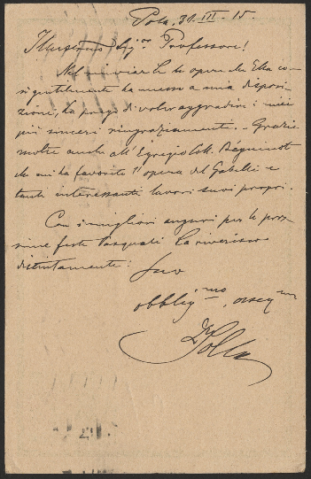 Pola, 30. III. 15.
Illustrissimo Sig.or Professore!
Nel inviarLe le opere che Ella co-
sì gentilmente ha messo a mia disposi-
zione, La prego di voler aggradire i miei
più sinceri ringraziamenti. – Grazie
inoltre anche all'Egregio
che mi ha favorito l'opera del
tanti interessanti lavori suoi propri.
Con i migliori auguri per le pros-
sime feste Pasquali La riverisco
distintamente:
Suo
obblig.mo
Dr Solla